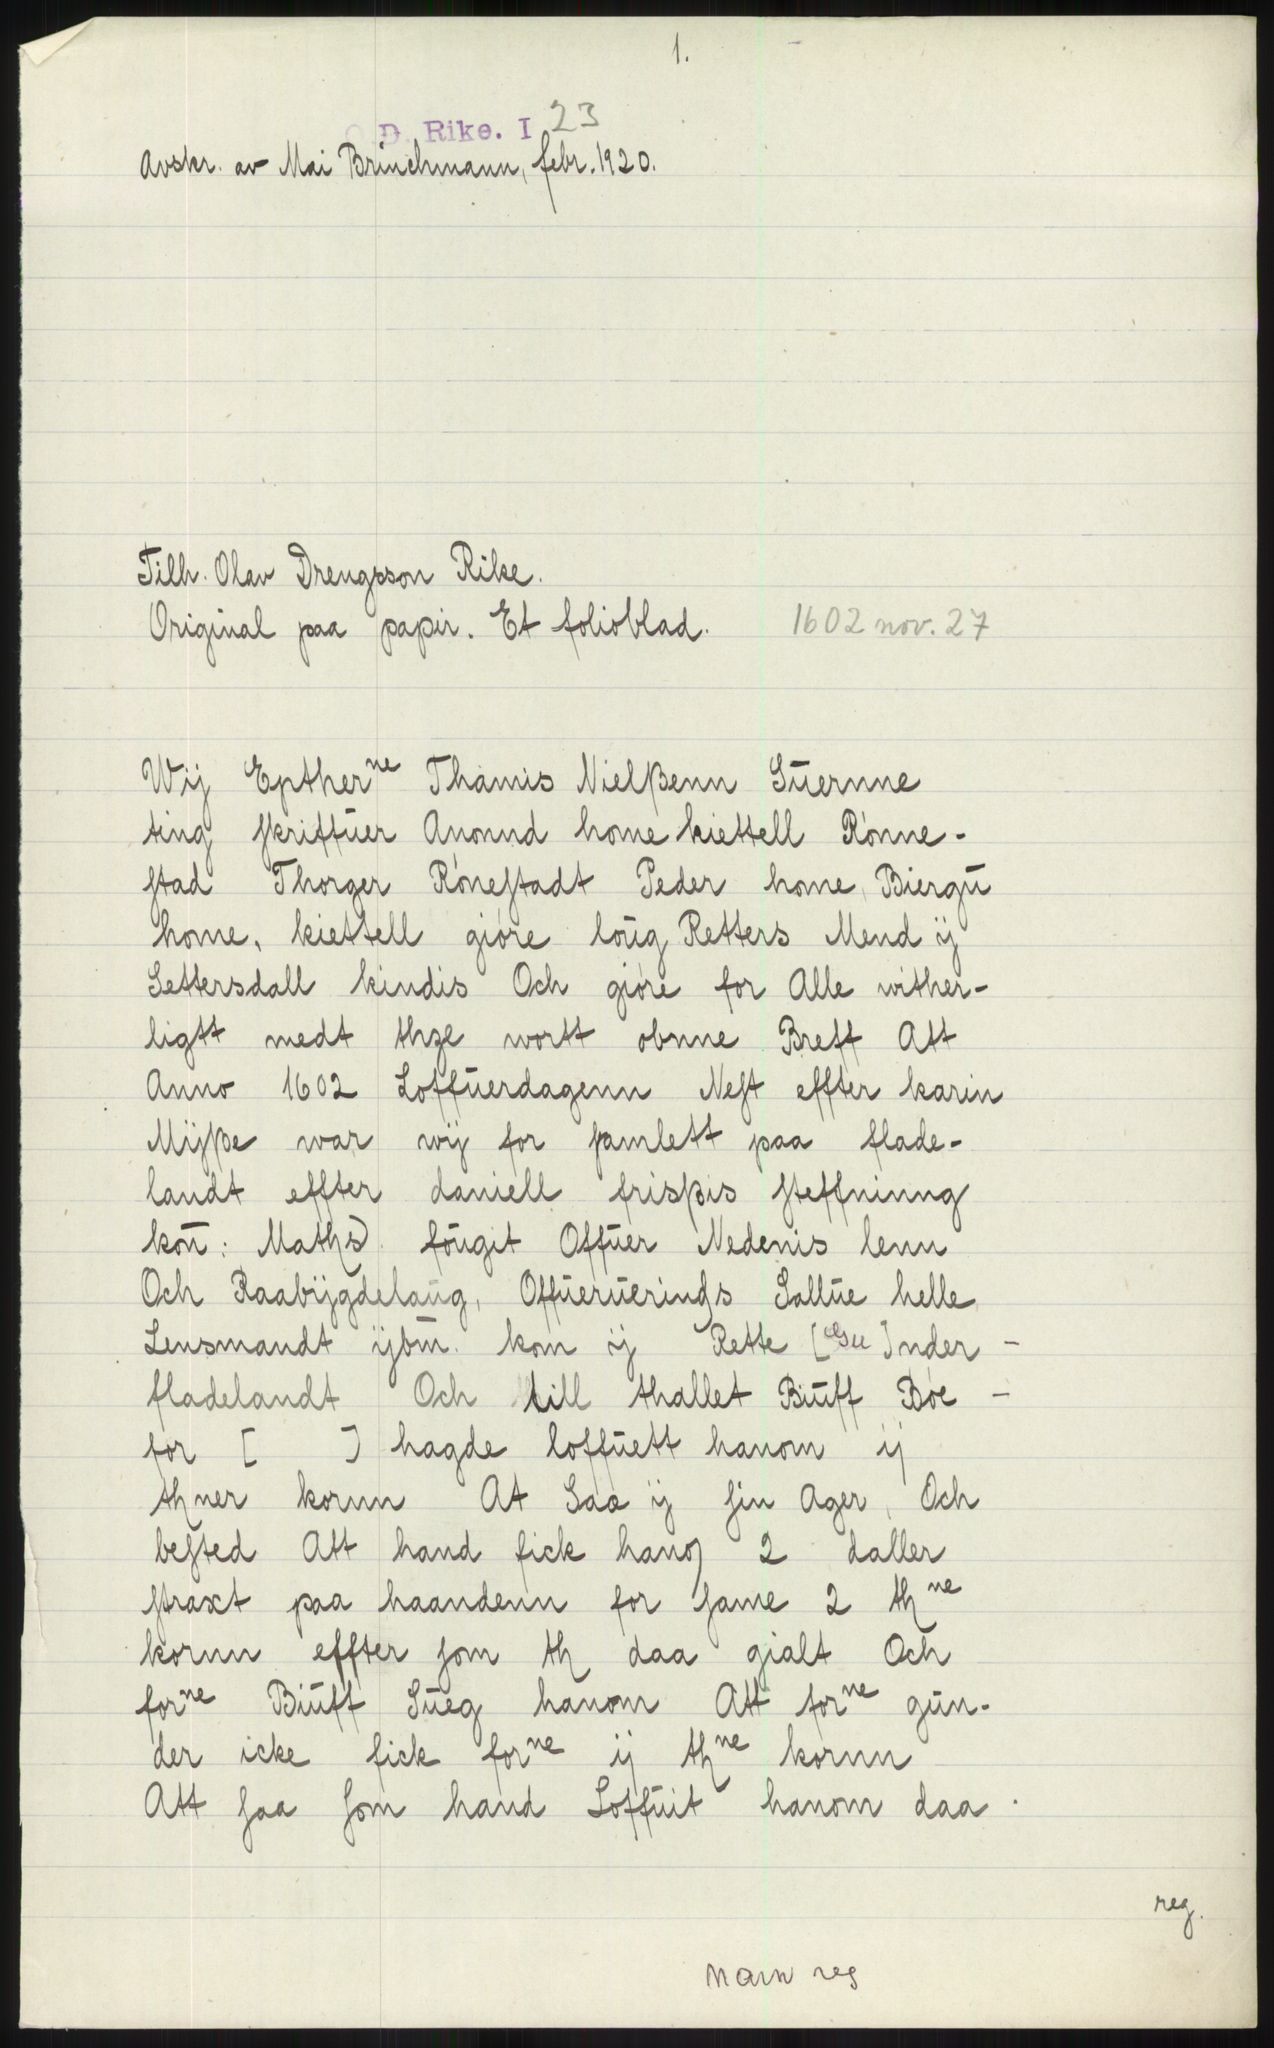 1.
O.D. Rike. I 23
Avskr. av Mai Brinchmann, febr. 1920.
Tilh. Olav Drengsson Rike.
Original paa papir. Et folioblad. 1602 nov. 27
Wij Epther<sup>ne</sup> Thamis Nielßenn Suernne
ting skriffuer Anonnd home kiettell Rónne-
stad Thorger Rónestadt Peder home, Biergu
home, kiettell gióre loug Retters Mend ij
Settersdall kindis Och gióre for Alle wither-
ligtt medt thze wortt obnne Breff Att
Anno 1602 Loffuerdagenn Nest effter karin
Mijße war wij for samlett paa flade-
landt effter daniell frisßis steffninng
kou: Maths fougit Offuer Nedenis lenn
Och Raabijgdelaug, Offueruerinds Sallue helle
Lensmandt ijbm. kom ij Rette [Gu]nder-
fladelandt Och till thallet Biuff Bóe-
for [ ] hagde loffuett hanom ij
thner kornn At Saa ij sin Ager, Och
bested Att hand fick hanom 2 daller
straxt paa haandenn for same 2 th<sup>ne</sup>
kornn effter som th daa gialt Och
for<sup>ne</sup> Biuff Sueg hanom Att for<sup>ne</sup> gun-
der icke fick for<sup>ne</sup> ij th<sup>ne</sup> kornn
Att saa som hand Loffuit hanom daa.
reg.
navn reg